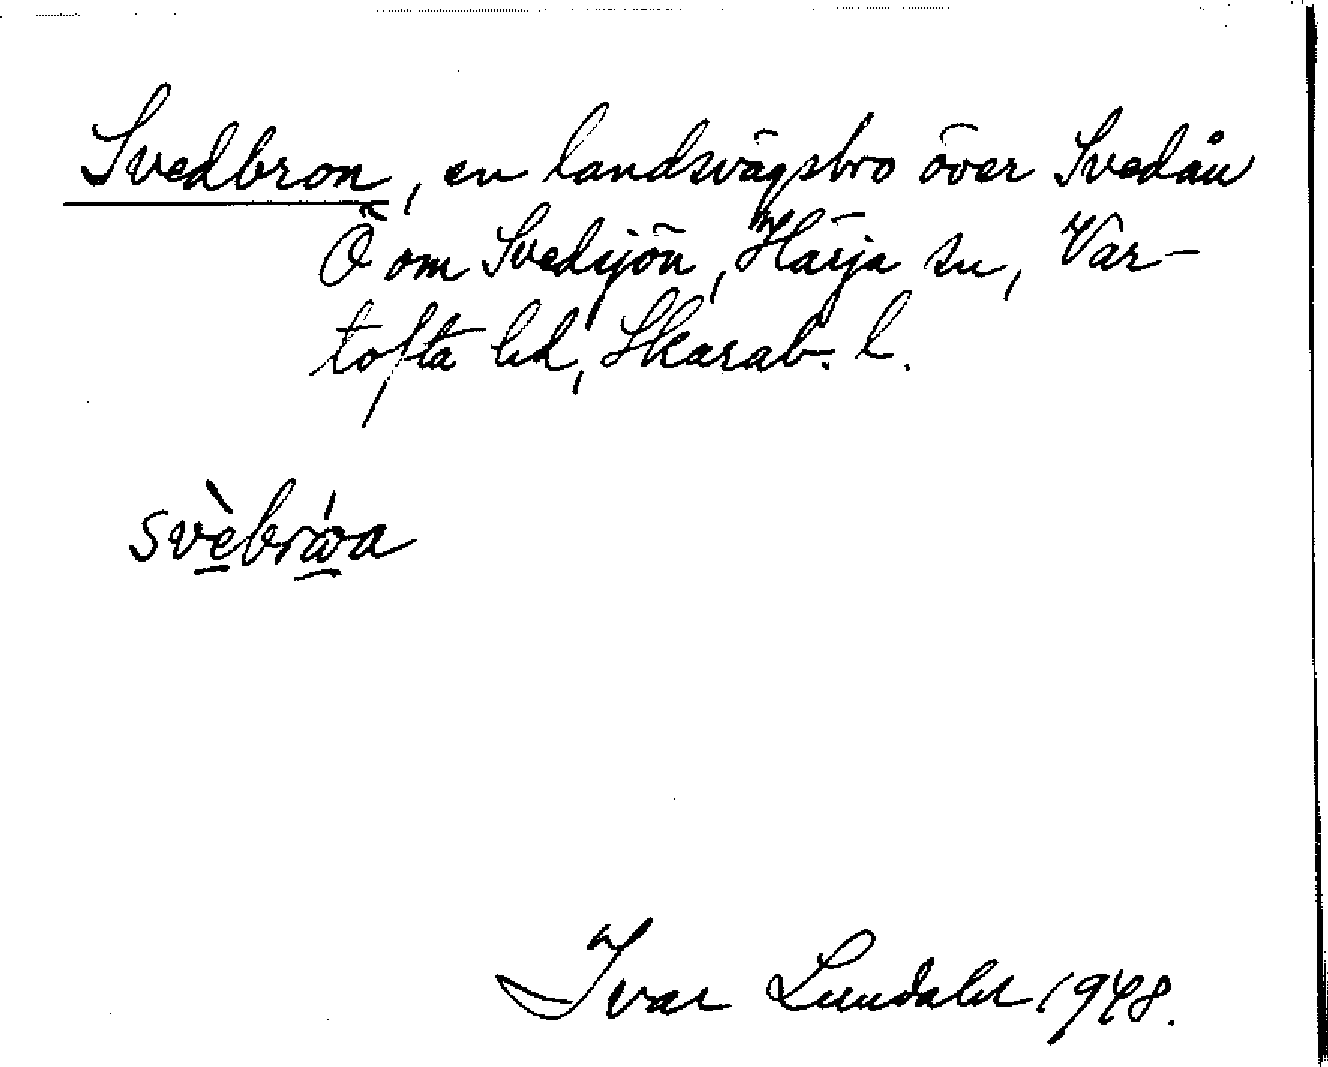 Svedbron, en landsvägsbro över Svedån
Ö om Svedsjön, Härja sn, Var-
tofta hd, Skarab. l.
svèbrώa
Ivar Lundahl 1948.